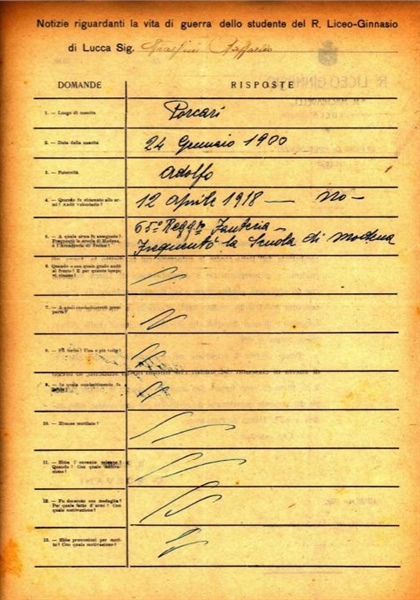 Notizie riguardanti la vita di guerra dello studente del R. Liceo-Ginnasio
di Lucca Sig.
DOMANDE
RISPOSTE
1. — Luogo di nascita
Porcari
2. — Data della nascita
24 Gennaio 1900
3. — Paternità
Adolfo
4. — Quando fu chiamato alle armi? Andò volontario?
12 Aprile 1918 — No —
5. — A quale arma fu assegnato?
Frequentò la scuola di Modena,
65° Regg. Fanteria —
Frequentò la Scuola di Modena
6. — Quando e con quale grado andò
al fronte? E per quanto tempo
vi rimase?
7. — A quali combattimenti
8. — Fu ferito? Una o più volte?
9. — In quale combattimento fu
10. — Rimase mutilato?
11. — Ebbe
Quando? Con quale
12. — Fu decorato con medaglia?
Per quale fatto d'arme? Con
quale motivazione?
13. — Ebbe promozioni per
Con quale motivazione?